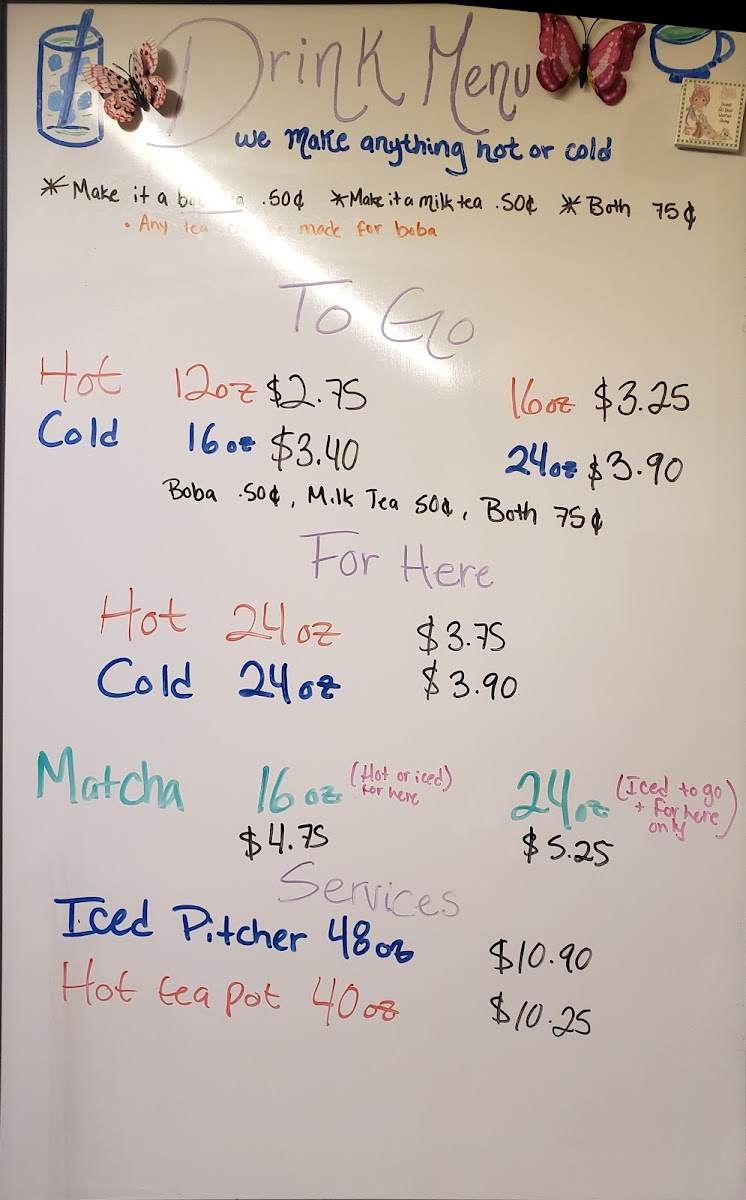 Drink Menu
we make anything hot or cold
*Make it a .50¢ *Make it a milk tea .50¢ *Both 75¢
• Any tea made for boba
To Go
Hot 12oz $2.75 16oz $3.25
Cold 16oz $3.40 24oz $3.90
Boba .50¢, Milk Tea 50¢, Both 75¢
For Here
Hot 24oz $3.75
Cold 24oz $3.90
Matcha 16oz (Hot or iced) for here 24oz (Iced to go + For here only)
$4.75 $5.25
Services
Iced Pitcher 48oz $10.90
Hot tea pot 40oz $10.25